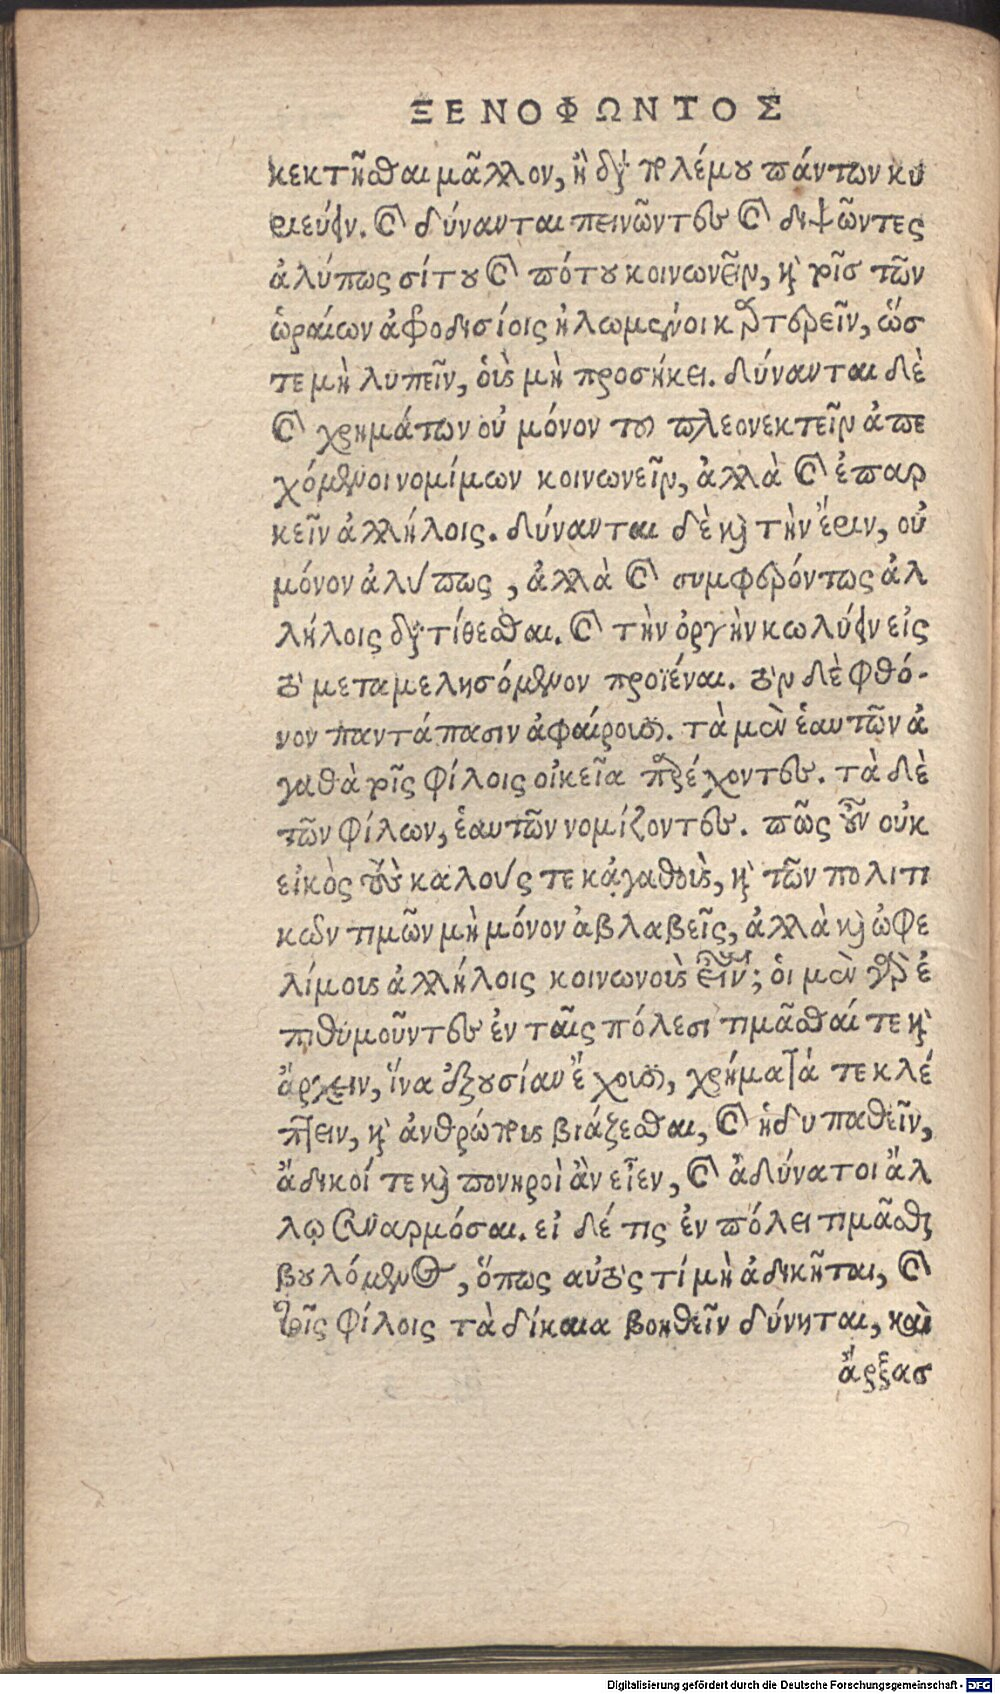 ΞΕΝΟΦΩΝΤΟΣ
κεκτῆσθαι μᾶλλον, ἢ διὰ πολέμου πάντων κυ
ριεύειν. καὶ δύνανται πεινῶντες καὶ διψῶντες
ἀλύπως σίτου καὶ πότου κοινωνεῖν, καὶ τοῖσ τῶν
ὡραίων ἀφροδισίοις ἡδόμενοι καρτερεῖν, ὥσ
τε μὴ λυπεῖν, οὓς μὴ προσήκει. δύνανται δὲ
καὶ χρημάτων οὐ μόνον τοῦ πλεονεκτεῖν ἀπε
χόμενοι νομίμων κοινωνεῖν, ἀλλὰ καὶ ἐπαρ
κεῖν ἀλλήλοις. δύνανται δὲ καὶ τὴν ἔριν, οὐ
μόνον ἀλύπως, ἀλλὰ καὶ συμφερόντως ἀλ
λήλοις διατίθεσθαι. καὶ τὴν ὀργὴν κωλύειν εἰς
τὸ μεταμελησόμενον προϊέναι. τὸν δὲ φθό-
νον παντάπασιν ἀφαίρουσι. τὰ μὲν ἑαυτῶν ἀ
γαθὰ τοῖς φίλοις οἰκεῖα παρέχοντες. τὰ δὲ
τῶν φίλων, ἑαυτῶν νομίζοντες. πῶς οὖν οὐκ
εἰκὸς τοὺς καλούς τε κἀγαθοὺς, καὶ τῶν πολιτι
κῶν τιμῶν μὴ μόνον ἀβλαβεῖς, ἀλλὰ καὶ ὠφε
λίμους ἀλλήλοις κοινωνοὺς εἶναι; οἱ μὲν γὰρ ἐ
πιθυμοῦντες ἐν ταῖς πόλεσι τιμᾶσθαί τε καὶ
ἄρχειν, ἵνα ἐξουσίαν ἔχουσι, χρήματά τε κλέ
πτειν, καὶ ἀνθρώπους βιάζεσθαι, καὶ ἡδυπαθεῖν,
ἄδικοί τε καὶ πονηροὶ ἂν εἶεν, καὶ ἀδύνατοι ἄλ
λῳ συναρμόσαι. εἰ δέ τις ἐν πόλει τιμᾶσθαι
βουλόμενος, ὅπως αὐτός τί μὴ ἀδικῆται, καὶ
τοῖς φίλοις τὰ δίκαια βοηθεῖν δύνηται, καὶ
ἄρξασ
Digitalisierung gefördert durch die Deutsche Forschungsgemeinschaft - DFG